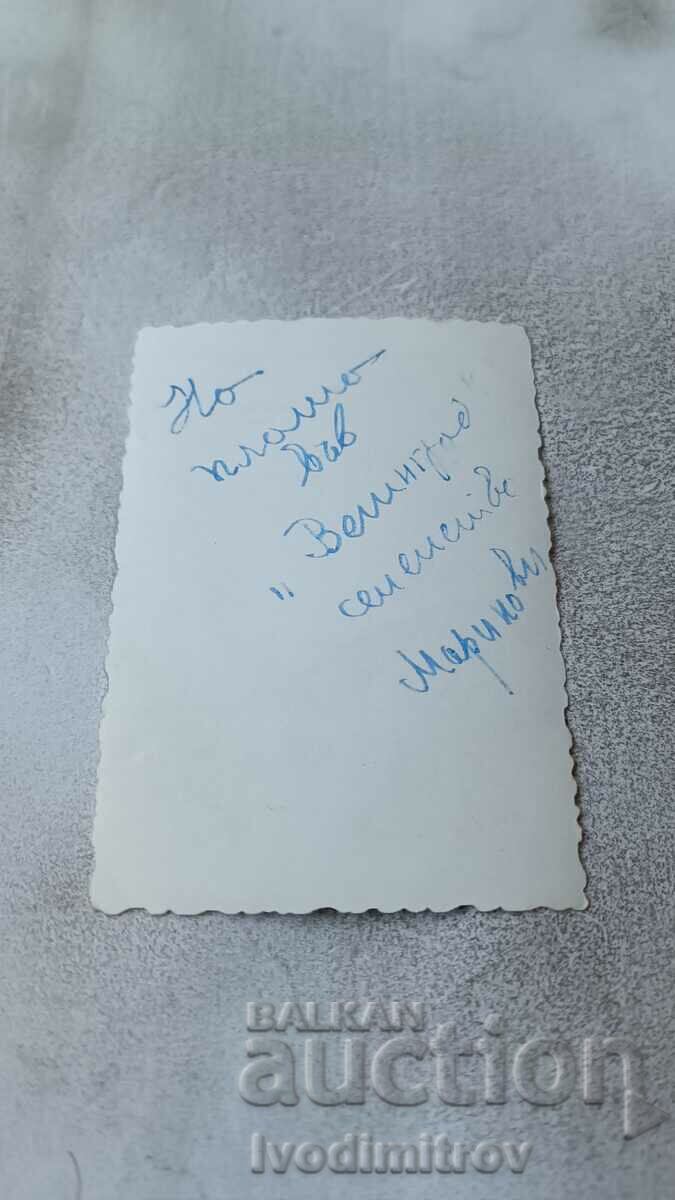 На
плажа
във
"Ленинград"
семейства
Маринови
BALKAN
auction
Ivodimitrov